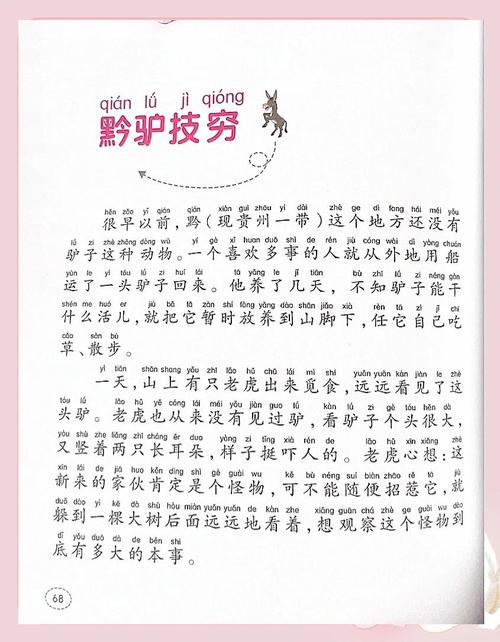 qián lǘ jì qióng
黔驴技穷
hěn zǎo yǐ qián qián xiàn guì zhōu yí dài zhè ge dì fang hái méi yǒu
很早以前，黔（现贵州一带）这个地方还没有
lǘ zi zhè zhǒng dòng wù yí gè xǐ huan duō shì de rén jiù cóng wài dì yòng chuán
驴子这种动物。一个喜欢多事的人就从外地用船
yùn le yì tóu lǘ zi huí lái tā yǎng le jǐ tiān bù zhī lǘ zi néng gàn
运了一头驴子回来。他养了几天，不知驴子能干
shén me huó er jiù bǎ tā zàn shí fàng yǎng dào shān jiǎo xià rèn tā zì jǐ chī
什么活儿，就把它暂时放养到山脚下，任它自己吃
cǎo sàn bù
草、散步。
yì tiān shān shang yǒu zhī lǎo hǔ chū lái mì shí yuǎn yuǎn kàn jiàn le zhè
一天，山上有只老虎出来觅食，远远看见了这
tóu lǘ lǎo hǔ yě cóng lái méi yǒu jiàn guo lǘ kàn lǘ zi gè tóu hěn dà
头驴。老虎也从来没有见过驴，看驴子个头很大，
yòu shù zhe liǎng zhī cháng ěr duo yàng zi tǐng xià rén de lǎo hǔ xīn xiǎng zhè
又竖着两只长耳朵，样子挺吓人的。老虎心想：这
xīn lái de jiā huo kěn dìng shì gè guài wu kě bù néng suí biàn zhāo rě tā jiù
新来的家伙肯定是个怪物，可不能随便招惹它，就
duǒ dào yì kē dà shù hòu miàn yuǎn yuǎn de kàn zhe xiǎng guān chá zhè ge guài wu dào
躲到一棵大树后面远远地看着，想观察这个怪物到
dǐ yǒu duō dà de běn shi
底有多大的本事。
68